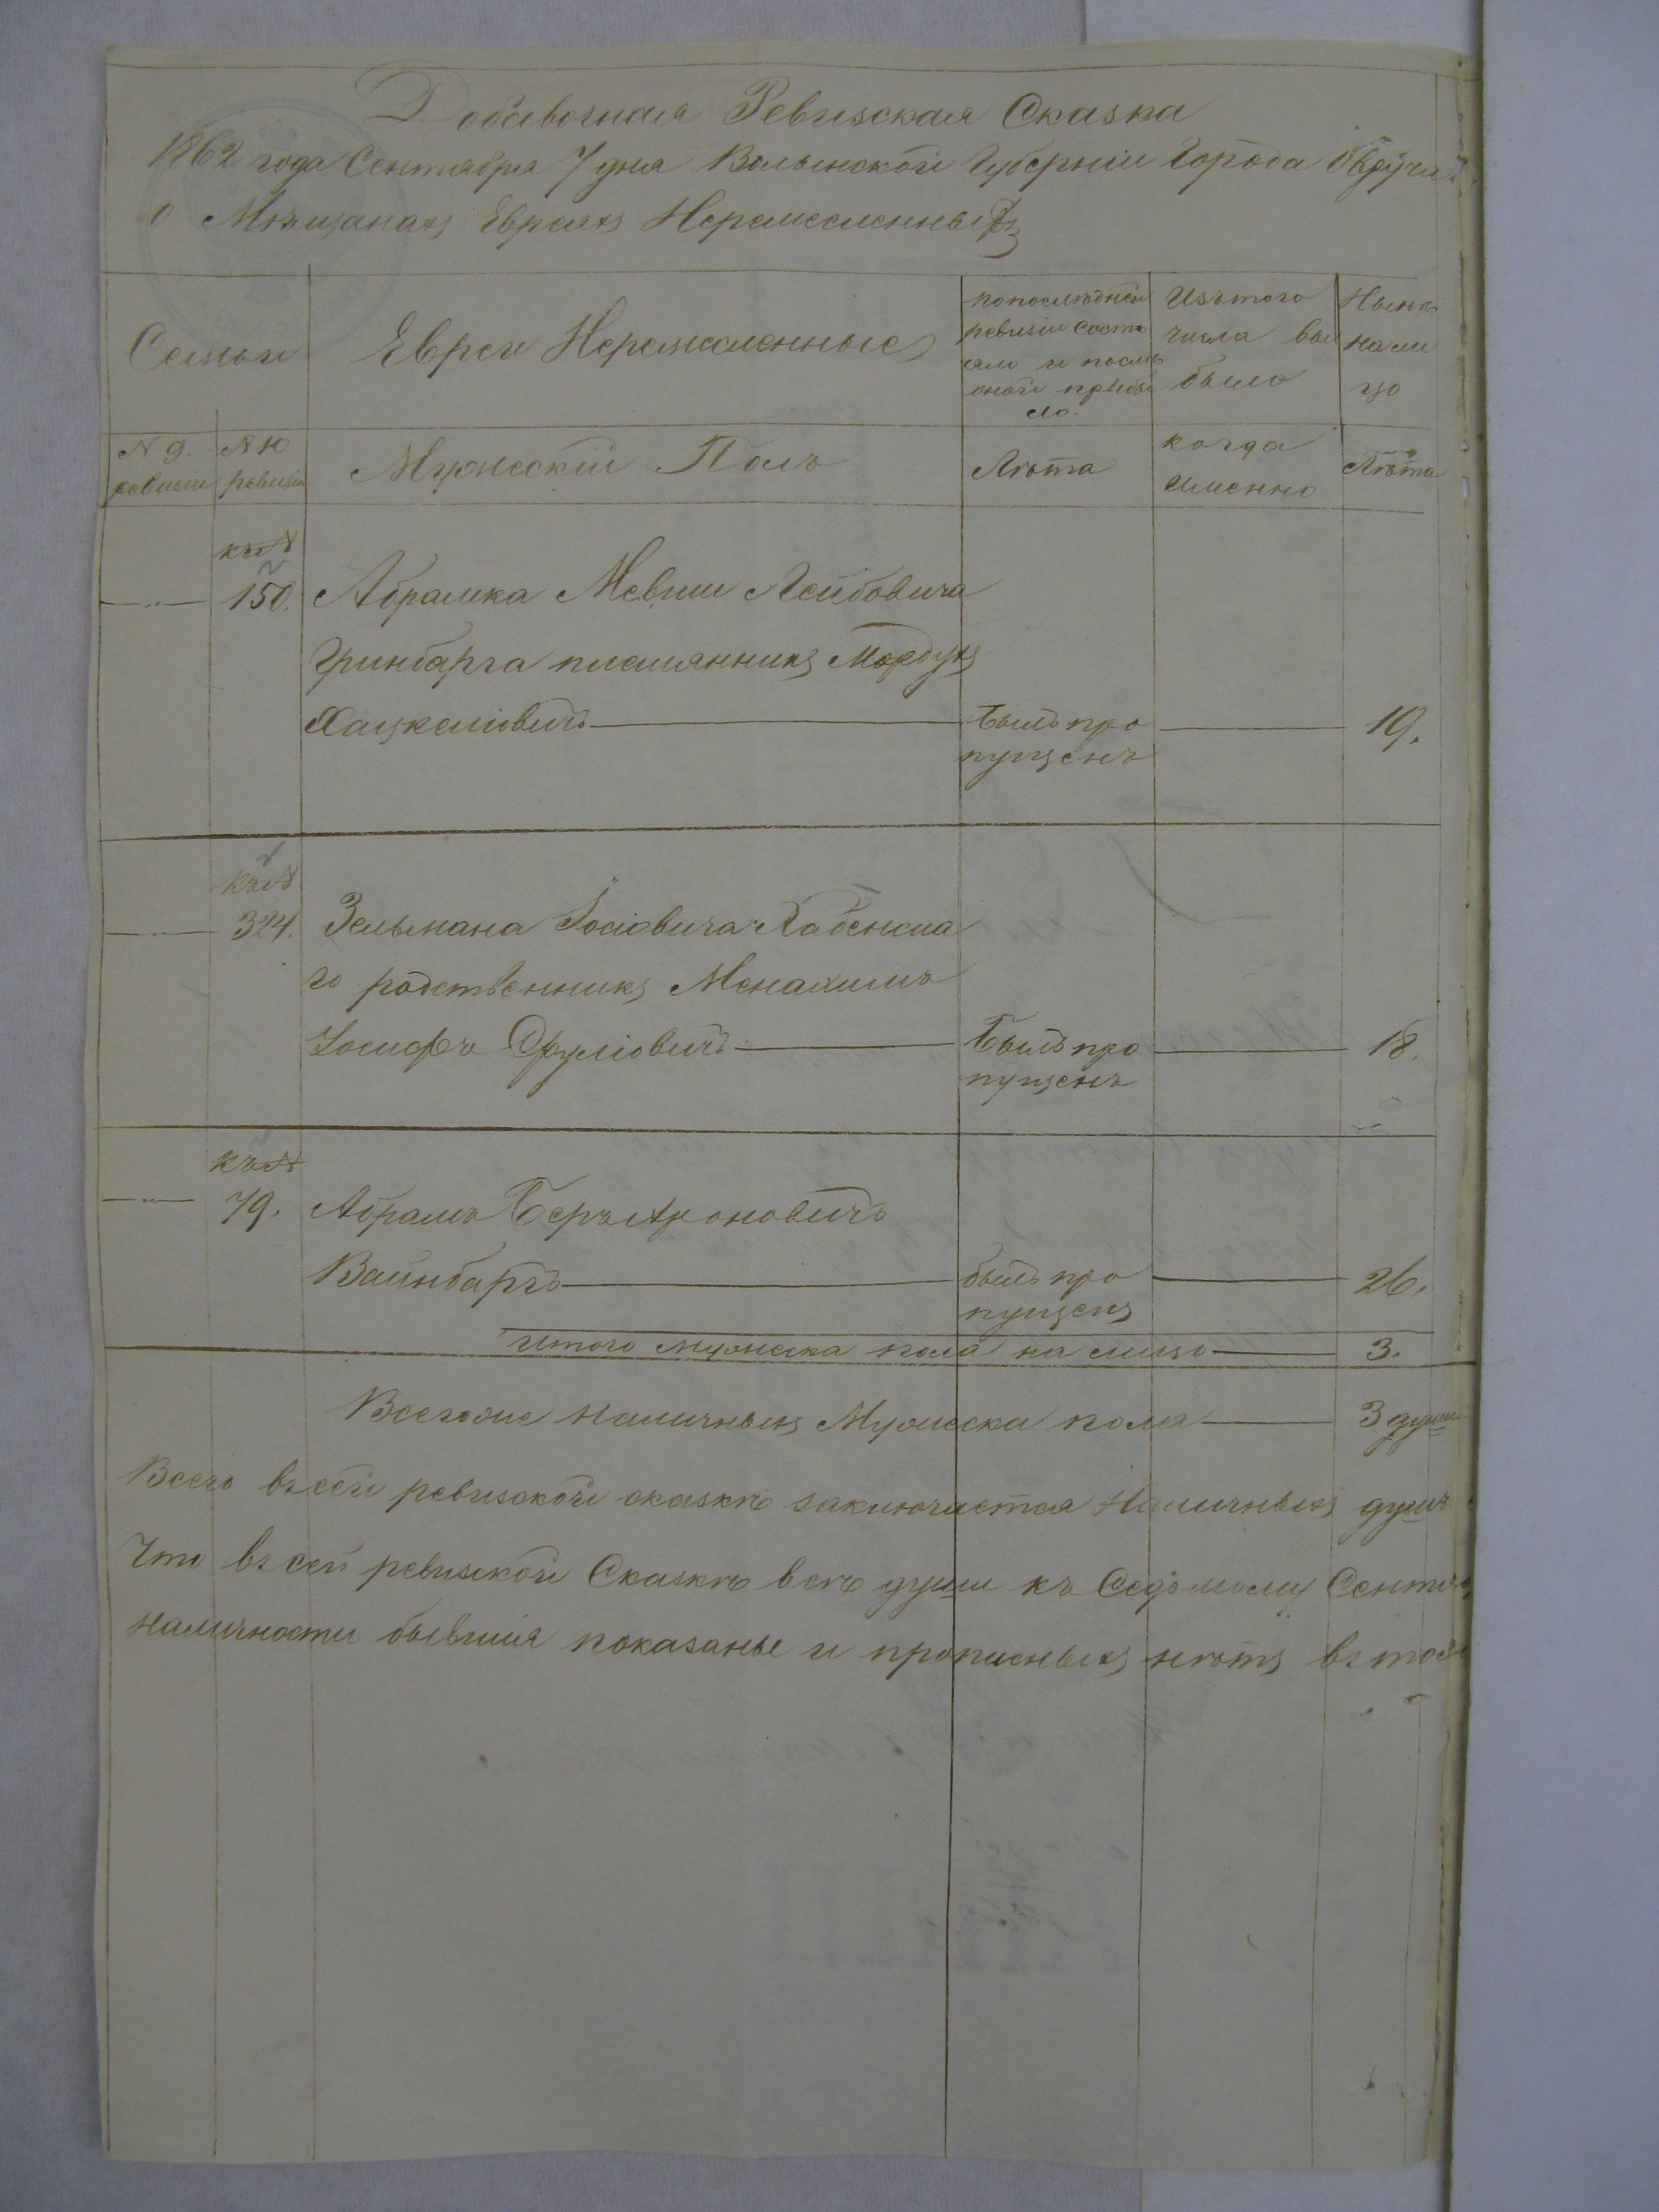 Добавочная Ревизская Сказка
1862 года Сентября 7 дня Волынской Губерніи Города Овруча
о Мѣщанахъ Евреяхъ Неремесленныхъ
Семьи
Евреи Неремесленные
по послѣдней
ревизіи состо
яло и послѣ
оной прибы
ло.
Изътого
числа вы
было
Нынѣ
нали
цо
№ 9.
ревизіи
№ 10
ревизіи
Мужескій Полъ
Лѣта
когда
именно
Лѣта
къ№
150.
Абрамка Мевши Лейбовича
Гринбарга племянникъ Мордухъ
Хацкелiовичъ
Былъ про
пущенъ
19.
къ№
324.
Зельмана Iосiовича Хабенска
го родственникъ Менахимъ
Iосифъ Сруліовичъ
Былъ про
пущенъ
18.
къ№
79.
Абрамъ Беръ Ароновичъ
Вайнбаргъ
былъ про
пущенъ
26.
Итого мужеска пола на лицо 3.
Всегоже наличныхъ Мужеска пола 3 души
Всего въ сей ревизской сказкѣ заключается Наличныхъ душъ
Что въ сей ревизской Сказкѣ всѣ души къ Седьмому Сентя
наличности бывшія показаны и прописныхъ нѣтъ въ том